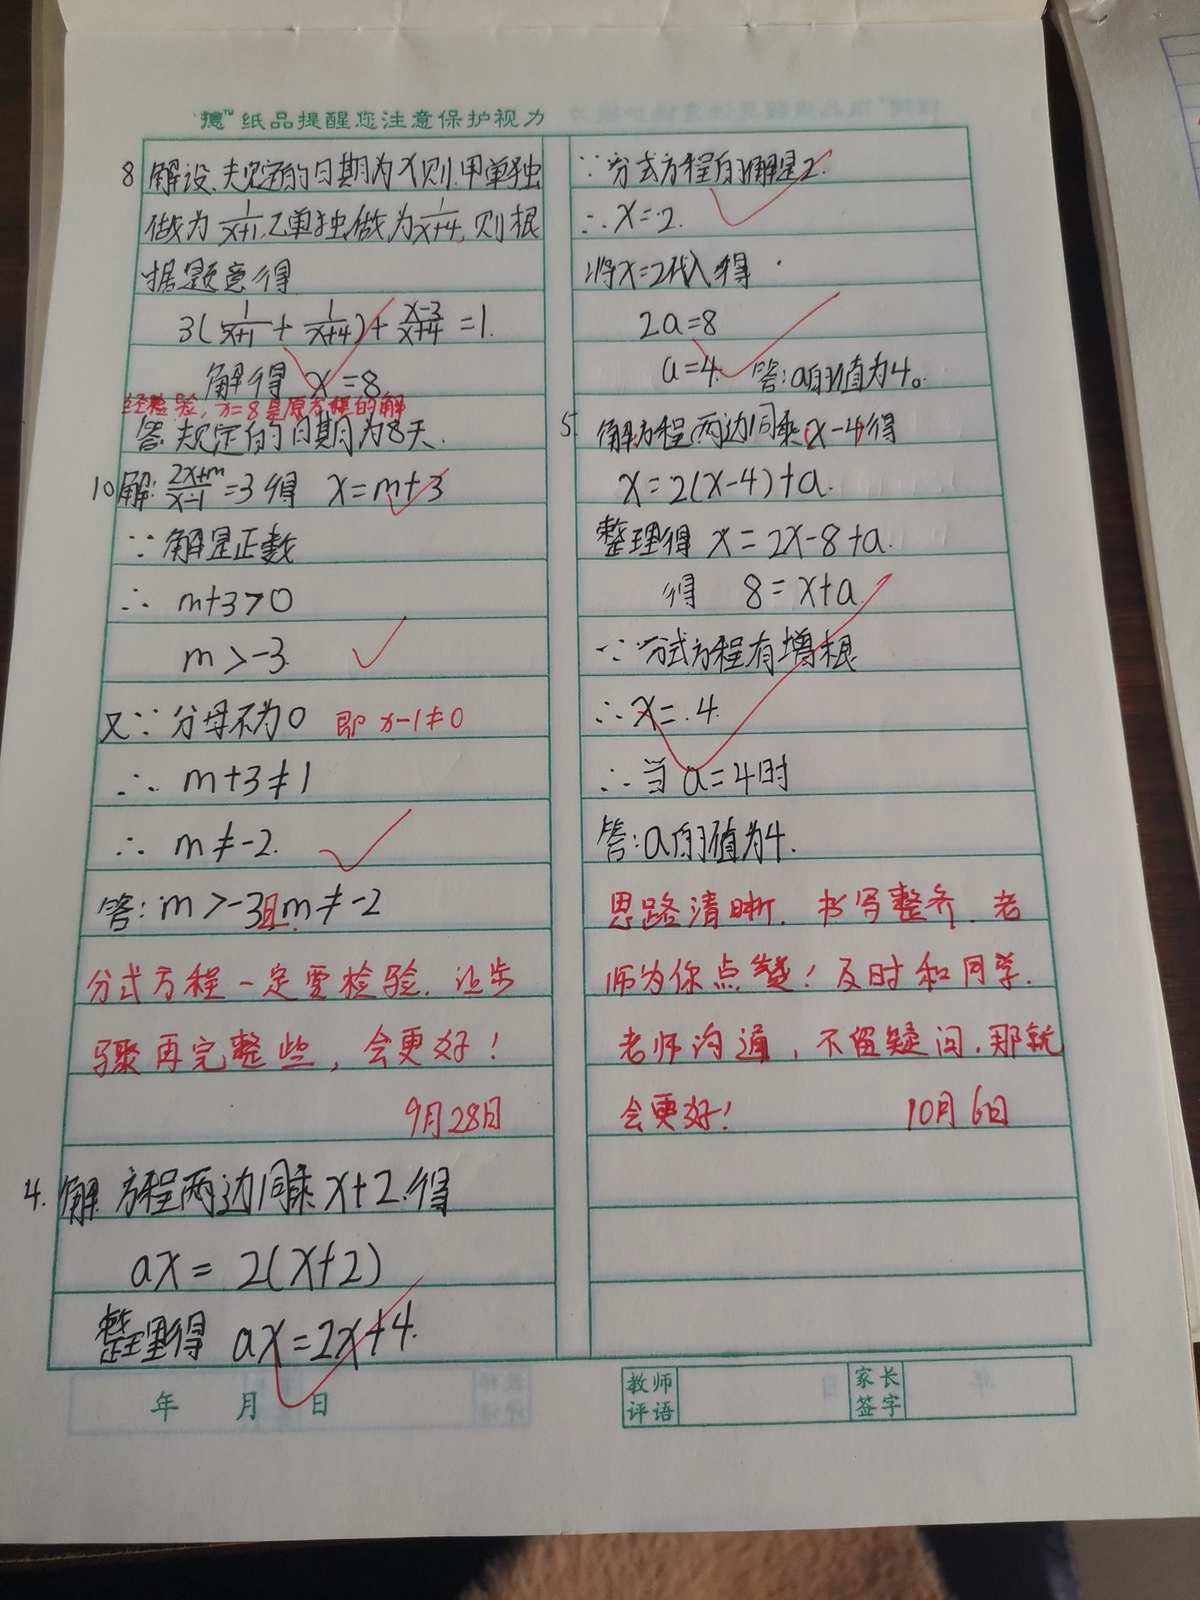 德™纸品提醒您注意保护视力
8 解设、夫规定的日期为x则.甲单独
做为1/(x+1),乙单独做为1/(x+4),则根
据题意得
3(1/(x+1) + 1/(x+4)) + (x-3)/(x+4) = 1.
解得 x=8.
经检验,x=8是原方程的解
答.规定的日期为8天.
10解:(2x+m)/(x-1)=3得 x=m+3
∵解是正数
∴ m+3>0
m>-3.
又∵分母不为0 即 x-1≠0
∴ m+3≠1
∴ m≠-2.
答:m>-3且m≠-2
分式方程一定要检验.让步
骤再完整些,会更好!
9月28日
4.解.方程两边同乘x+2.得
ax=2(x+2)
整理得 ax=2x+4.
年 月 日
∵分式方程的解是2.
∴x=2.
将x=2代入得
2a=8
a=4. 答:a的值为4。
5.解方程两边同乘x-4得
x=2(x-4)+a.
整理得 x=2x-8+a.
得 8=x+a
∵分式方程有增根
∴x=.4.
∴当a=4时
答:a的值为4.
思路清晰.书写整齐.老
师为你点赞!及时和同学.
老师沟通,不留疑问.那就
会更好! 10月6日
教师评语 家长签字